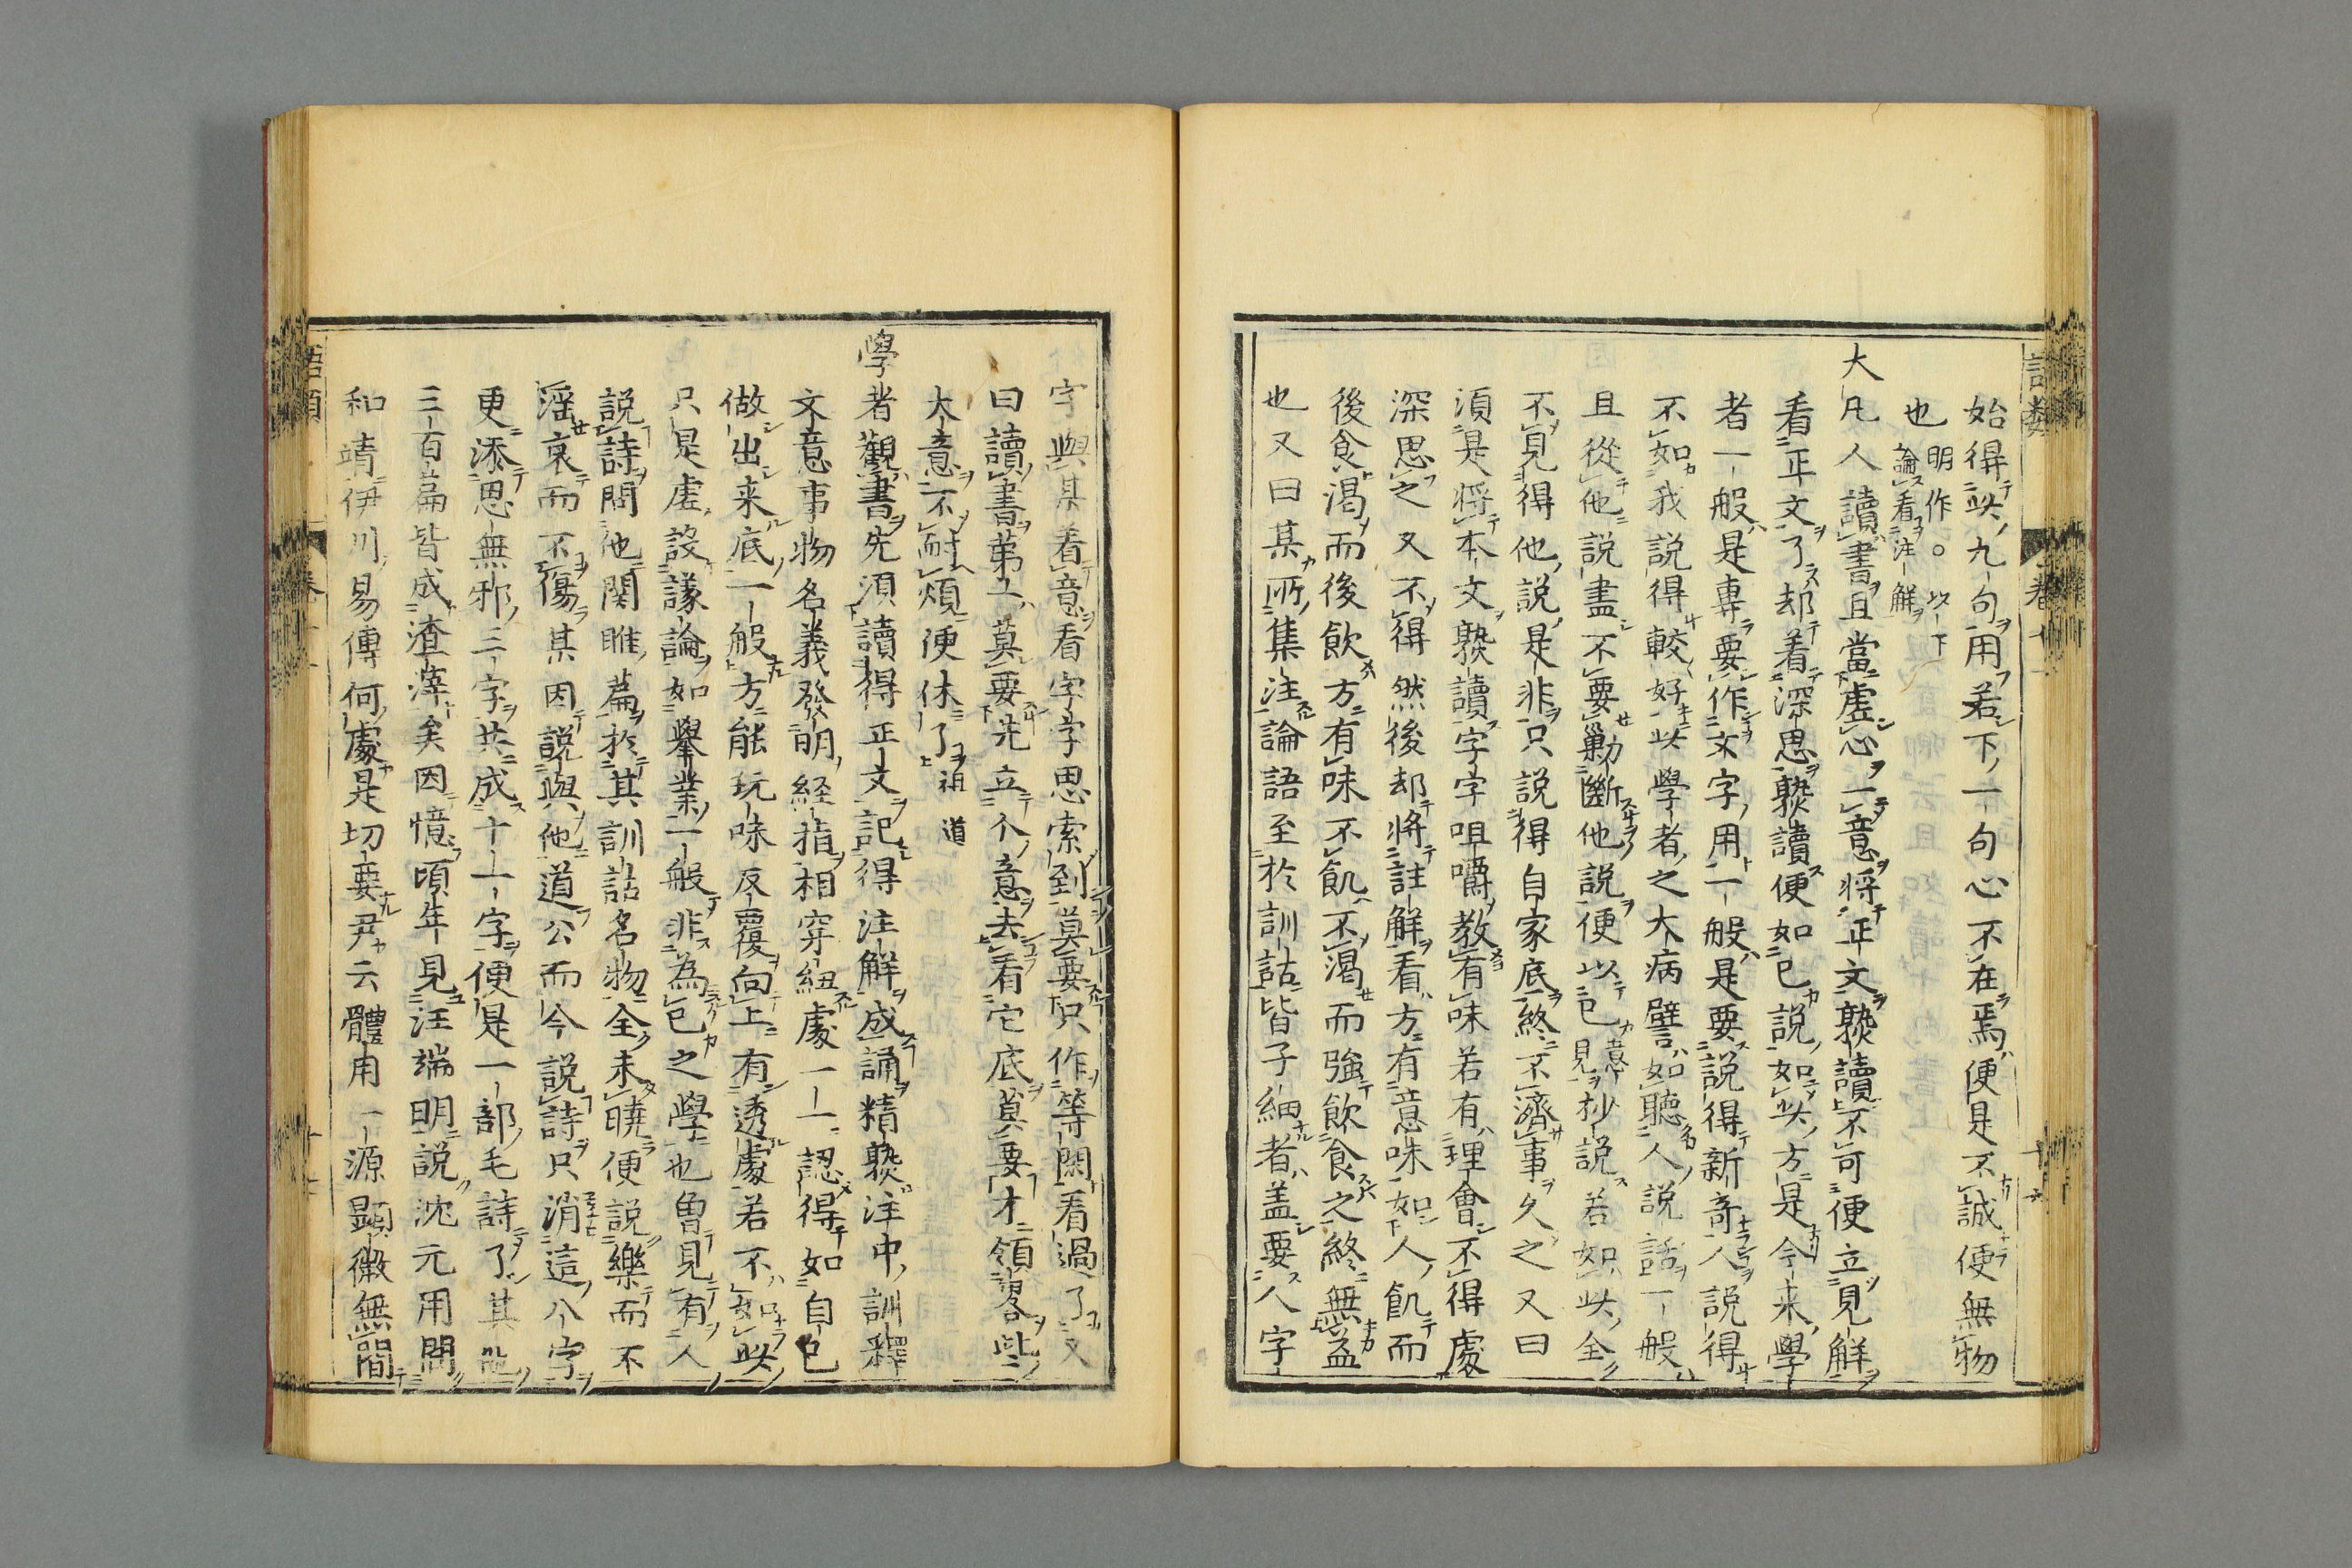 始得此九句用若下一句心不在焉便是不誠便無物
也明作○以下
論看注解
大凡人讀書且當虛心一意將正文熟讀不可便立見解
看正文了却着深思熟讀便如已説如此方是今來學
者一般是專要作文字用一般是要説得新竒人説得
不如我説得較好此學者之大病譬如聽人説話一般
且從他説盡不要勦斷他説便以已意見抄説若如此全
不見得他説是非只説得自家底終不濟事久之又曰
須是將本文熟讀字字咀嚼教有味若有理會不得處
深思之又不得然後却將註解看方有意味如人飢而
後食渴而後飲方有味不飢不渴而強飲食之終無益
也又曰某所集注論語至於訓詁皆子細者盖要人字
字與某看意看字字思索到莫要只作等閑看過了又
曰讀書第一莫要先立个意去看它底莫要才領畧些
大意不耐煩便休了祖道
學者觀書先須讀得正文記得注解成誦精熟注中訓釋
文意事物名義發明經指相穿紐處一一認得如自已
做出来底一般方能玩味反覆向上有透處若不如此
只是虛設議論如舉業一般非為已之學也曽見有人
説詩問他関睢篇於其訓詁名物全未曉便説樂而不
滛哀而不傷某因説與他道公而今説詩只消這八字
更添思無邪三字共成十一字便是一部毛詩了其他
三百篇皆成渣滓矣因憶頃年見汪端明説沈元用問
和靖伊川易傳何處是切要尹云體用一源顯微無間